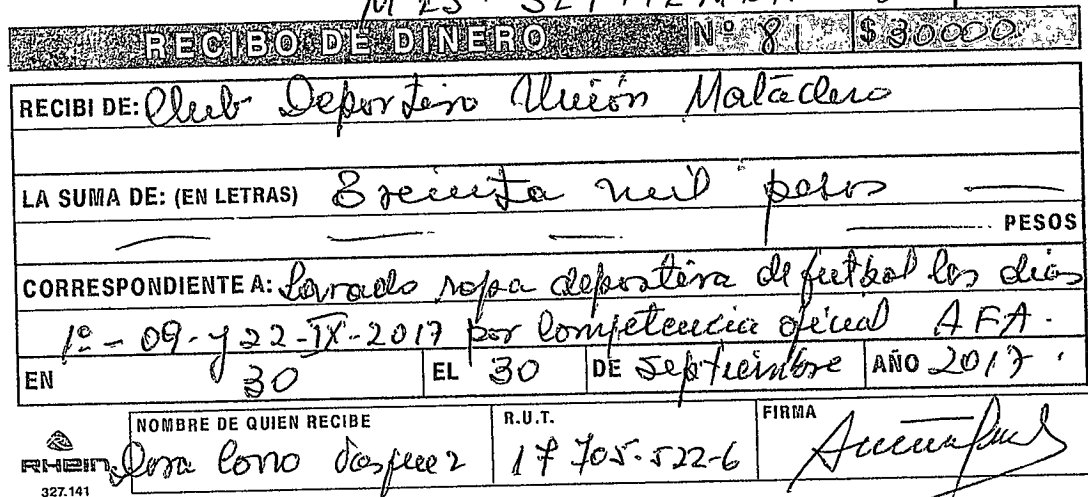 MES SEPTIEMBRE
RECIBO DE DINERO Nº 81 $30000
RECIBI DE: Club Deportivo Unión Matadero
LA SUMA DE: (EN LETRAS) Treinta mil pesos
PESOS
CORRESPONDIENTE A: Lavado ropa deportiva de futbol los dias
1º - 09 - y 22-IX-2017 por Competencia oficial AFA.
EN 30 EL 30 DE Septiembre AÑO 2017
NOMBRE DE QUIEN RECIBE R.U.T. FIRMA
RHEIN 17 705-522-6
327.141